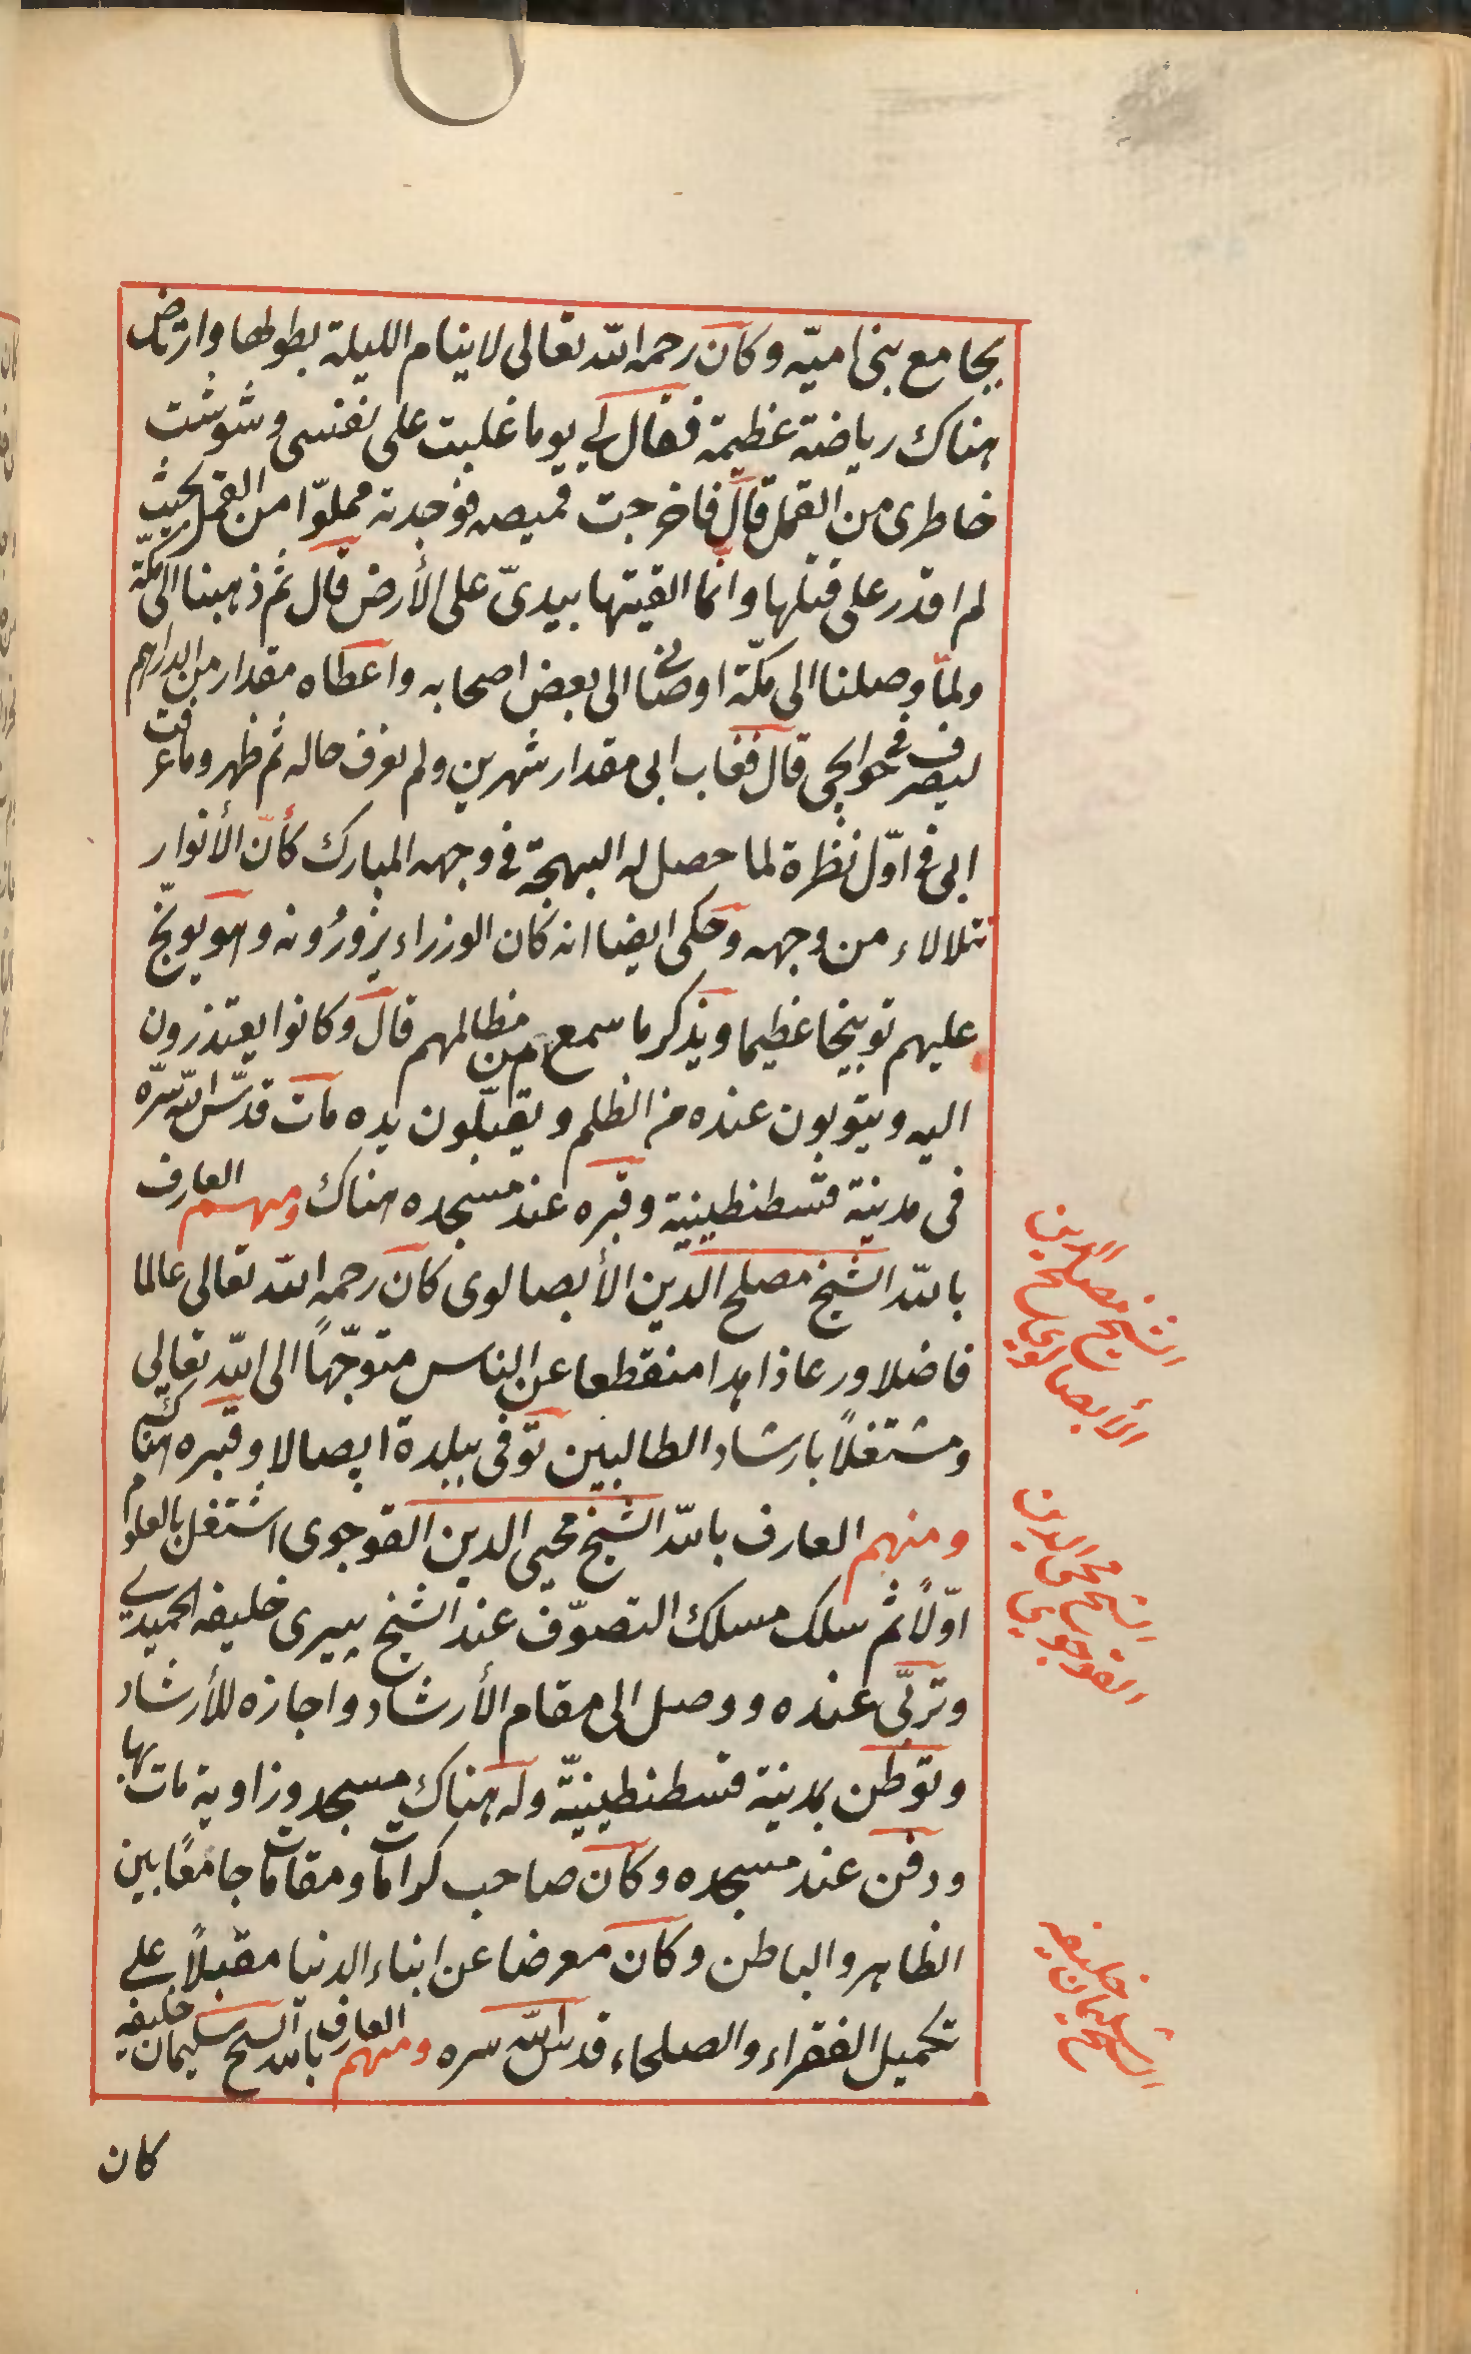 بجامع بنى اميّه وكان رحمه الله تعالى لا ينام الليلة بطولها وارتاض
هناك رياضة عظيمة فقال لي يوما غلبت على نفسى وشوشت
خاطرى من القمل قال فاخرجت قميصه فوجدته مملوّا من القمل بحيث
لم اقدر على قتلها وانما القيتها بيدىّ على الأرض قال ثم ذهبنا الى مكة
ولمّا وصلنا الى مكّة اوصانى الى بعض اصحابه واعطاه مقدار من الدراهم
ليصرف فى حوايجى قال فغاب ابى مقدار شهرين ولم نعرف حاله ثم ظهر وما عرفت
ابى فى اوّل نظرة لما حصل له البهجة فى وجهه المبارك كأنّ الأنوار
تتلالاء من وجهه وحكى ايضا انه كان الوزراء يزورُونه وهو يوبّخ
عليهم توبيخا عظيما ويذكر ما سمع من مظالمهم قال وكانوا يعتذرون
اليه ويتوبون عنده من الظلم ويقبّلون يده مات قدّس الله سرّه
فى مدينة قسطنطينية وقبره عند مسجده هناك ومنهم العارف
بالله الشيخ مصلح الدين الأبصالوى كان رحمه الله تعالى عالما
فاضلا ورعا زاهدا منقطعا عن الناس متوجّهاً الى الله تعالى
ومشتغلاً بارشاد الطالبين توفى ببلدة اپصالا وقبره هناك
ومنهم العارف بالله الشيخ محيى الدين القوجوى اشتغل بالعلوم
اوّلاً ثم سلك مسلك التصوّف عند الشيخ پيرى خليفه الحميدي
وتربّى عنده ووصل الى مقام الأرشاد واجازه للأرشاد
وتوطن بمدينة قسطنطينيّة وله هناك مسجد وزاوية مات بها
ودفن عند مسجده وكان صاحب كرامات ومقامات جامعًا بين
الظاهر والباطن وكان معرضا عن ابناء الدنيا مقبلاً على
تكميل الفقراء والصلحاء قدس الله سره ومنهم العارف بالله الشيخ سليمان خليفه
كان
الشيخ مصلح الدين
الأبصالوي
الشيخ محى الدين
القوجوي
الشيخ سليمان خليفه